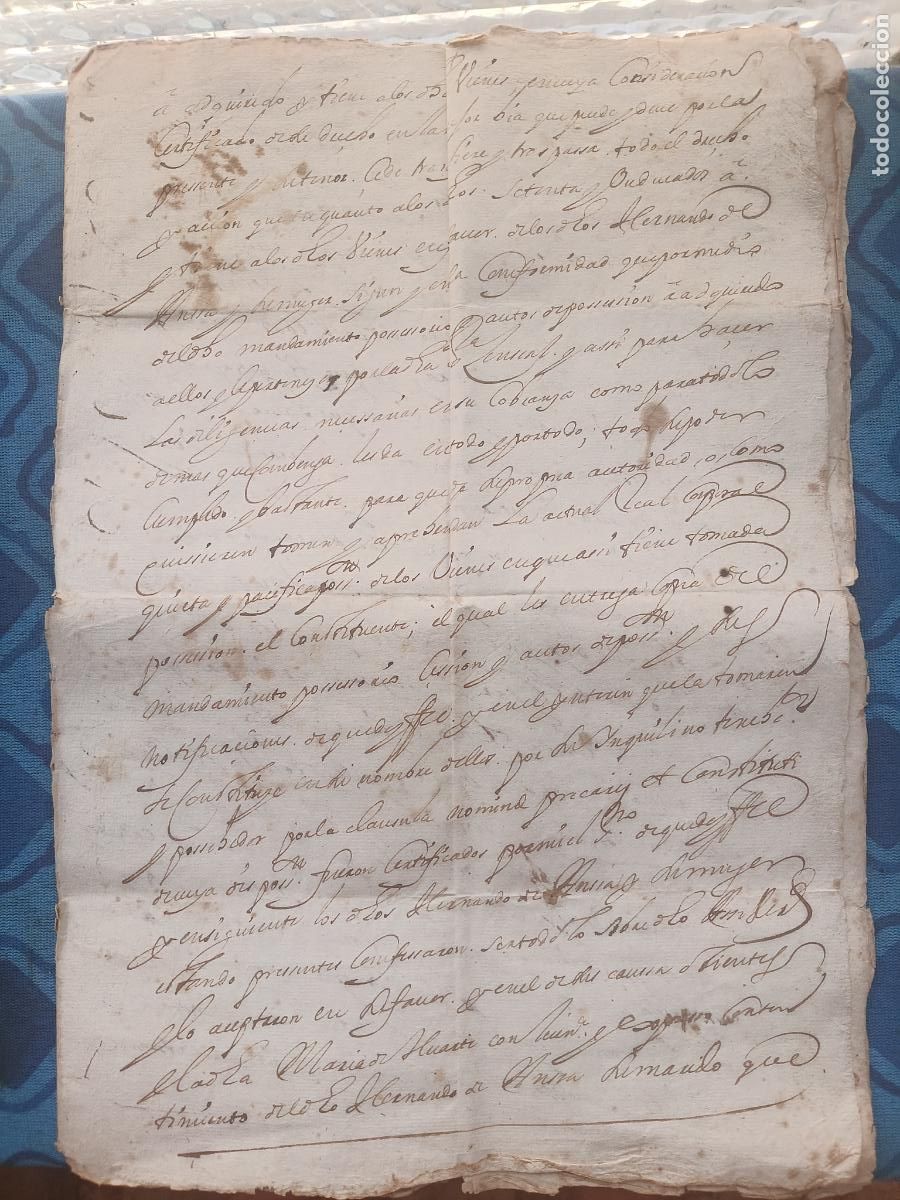 â adquirido y tiene a los dhos Vienes, en cuya Consideracion
Certificado de de drecho en la mejor via que puede y deue por la
presente y su tenor. Cede transfiere y traspassa. todo el drecho
y accion que en quanto a los dhos. Setenta y Ducados â
y tiene a los dhos Vienes en fauor. de los dhos Hernando de
Ansa y su muger. Siguri y en la Conformidad que por medio
del dho mandamiento possessorio y autos de possession â adquirido
a ellos y le pertenezca por la dha Censal. y assi para hacer
Las diligencias necessarias en su Cobranza como para todo lo
demas que Conbenga. les da en todo y por todo; todo su poder
Cumplido y bastante. para que de su propria autoridad, o como
quissieren tomen y aprehendan La actual Real Corporal
quieta y pacifica posson. de los Vienes en que assi tiene tomada
possession. el Constituente; el qual les entrega Copia del
mandamiento possessorio Cession y autos de posson. y sus
Notificaciones. de que doy ffee. y en el ynterin que la tomaren
se Constituye en su nombre dellos. por su Ynquilino tenedor
y posseedor por la clausula nomine precarij et Constituti
de cuya disposson. fueron Certificados por mi el Sno. de que doy ffee
y ensiguiente los dhos Hernando de Ansa y su muger
estando presentes Confessaron. ser todo lo sobre dho
y lo aceptaron en su fauor. y en el de sus caussa obientes
y la dha Maria de Huarte con licena. y expresso Consen
timiento del dho Hernando de Ansa su marido que
todocoleccion